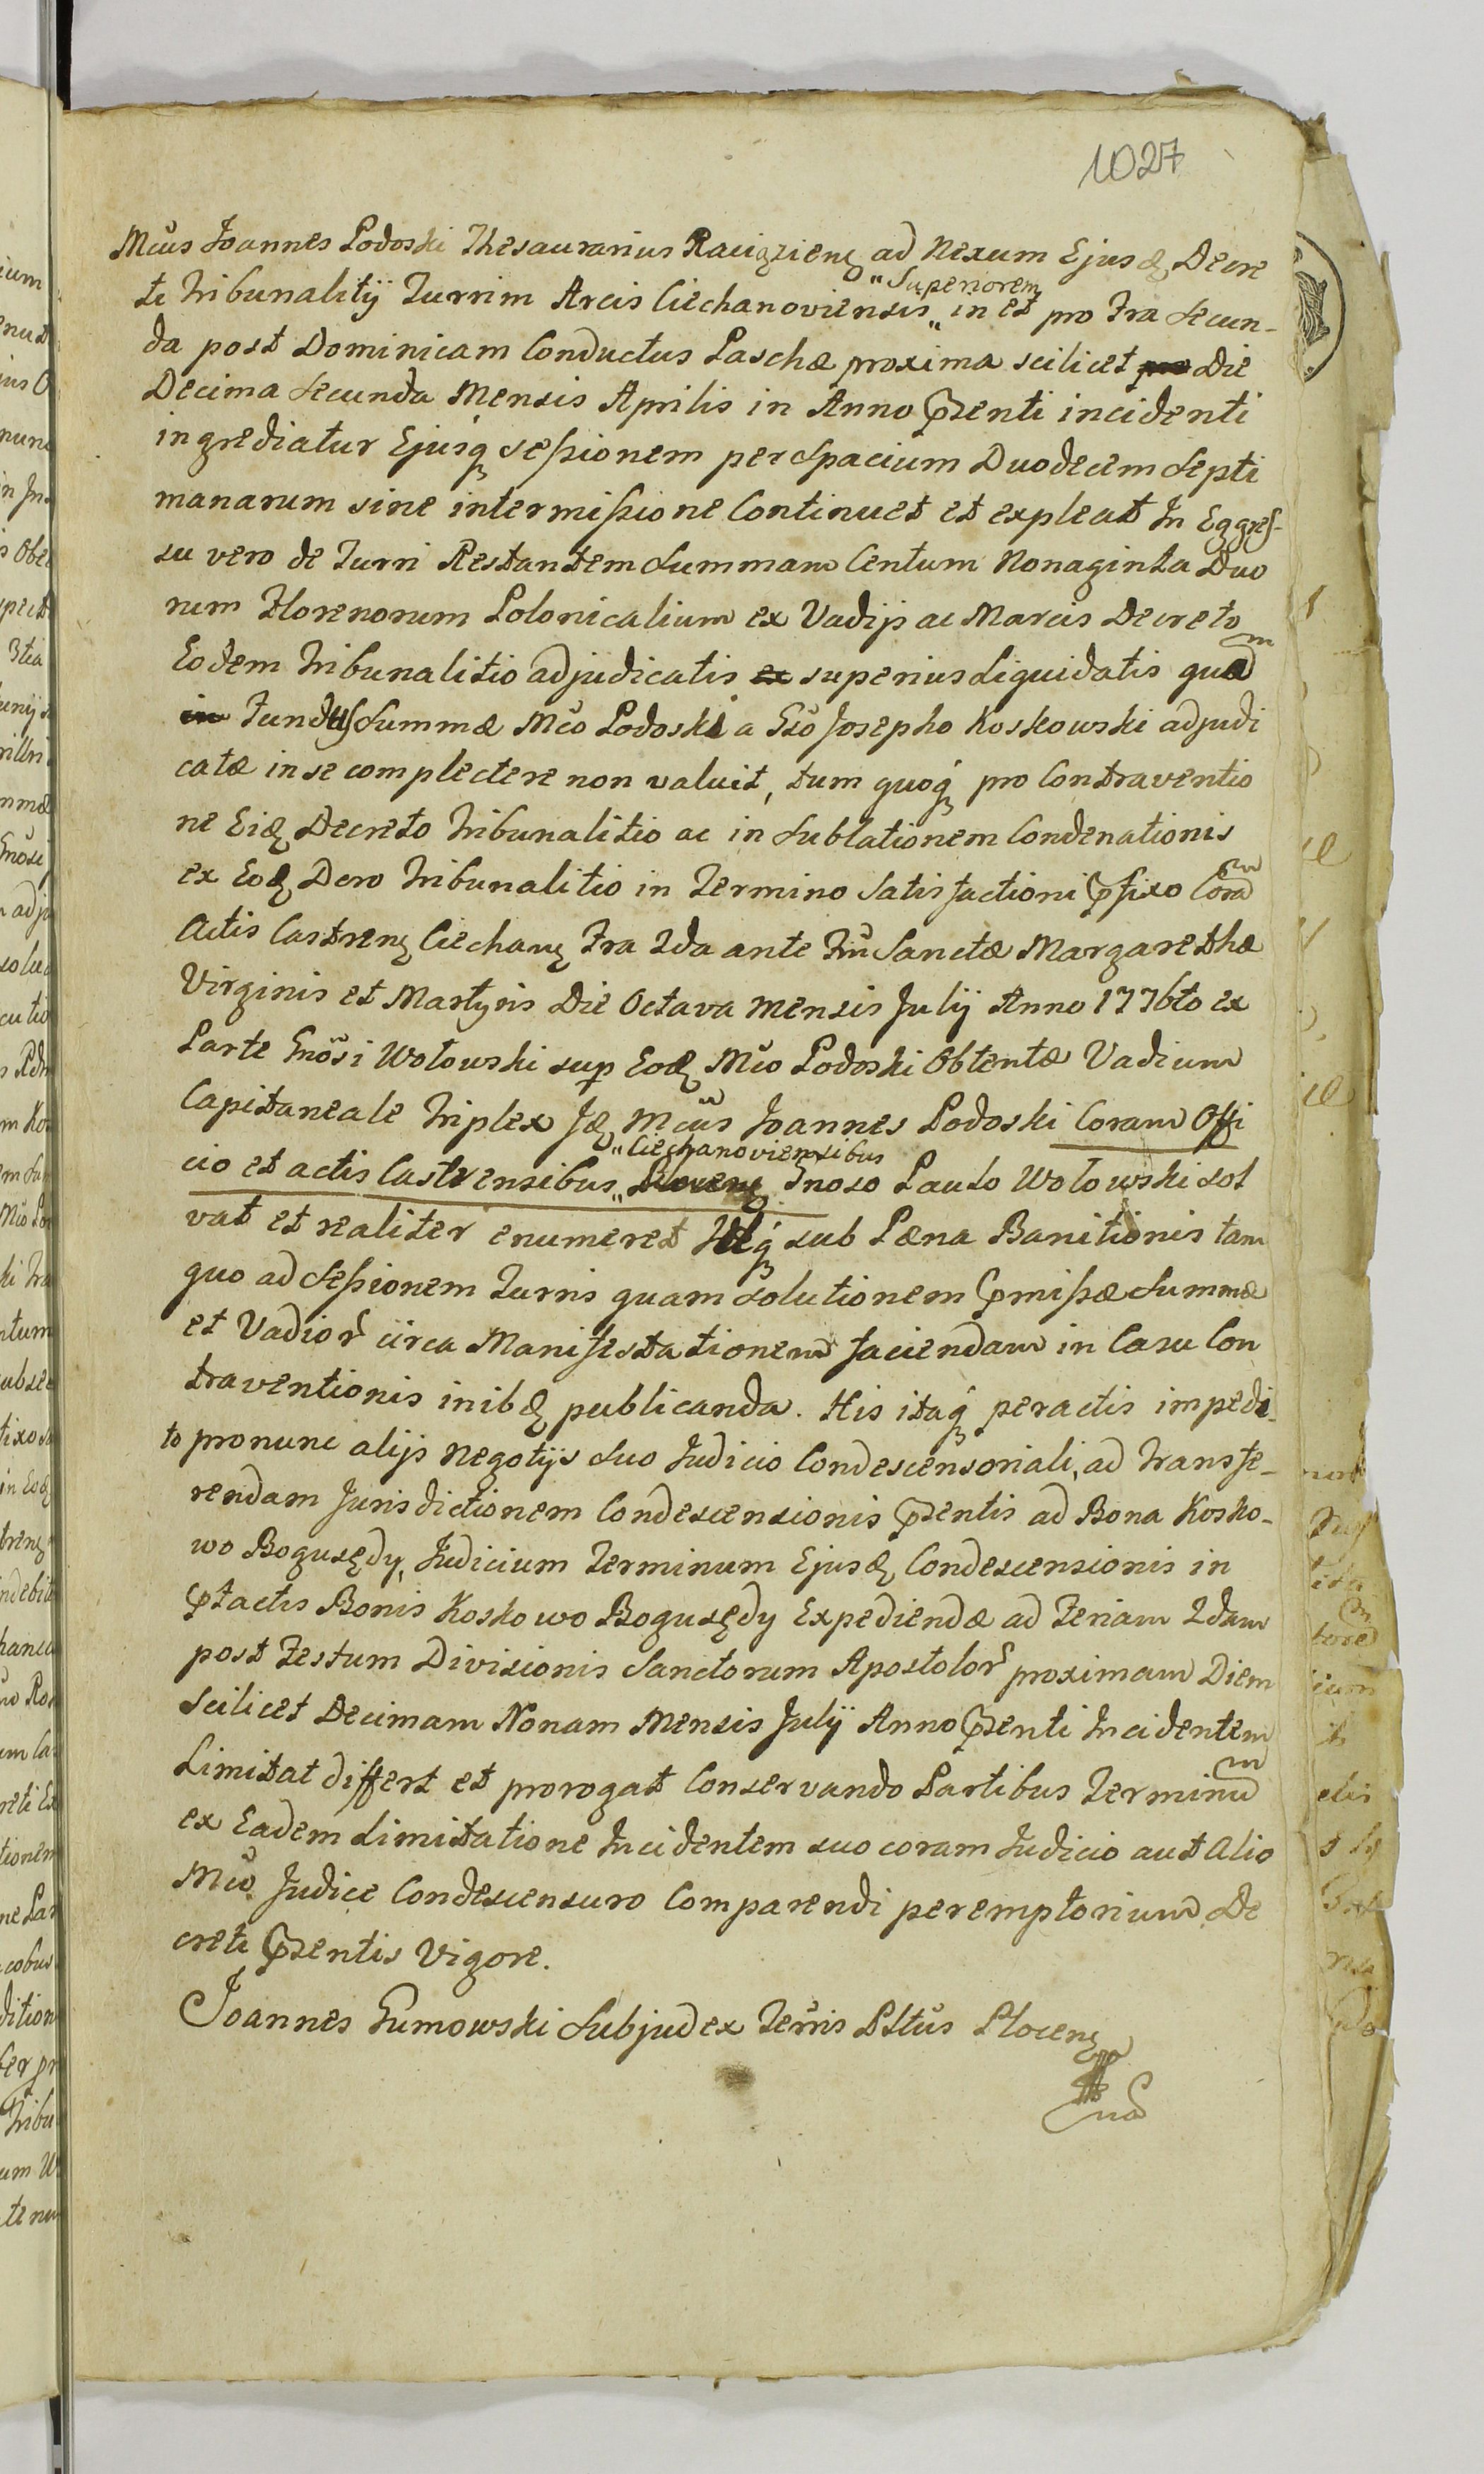 1027
Mcus Joannes Podoski Thesaurarius Raciązienꝫ ad Nexum Ejusdꝫ Decre
ti Tribunalitij Turrim Arcis Ciechanoviensis „Superiorem„ in et pro Fra Secun-
da post Dominicam Conductus Paschæ proxima scilicet pro Die
Decima Secunda Mensis Aprilis in Anno Pnsenti incidenti
ingrediatur Ejusqꝫ sessionem per Spacium Duodecim Septi
manarum sine intermissione Continuet et expleat In Eggres-
su vero de Turri Restantem Summam Centum Nonaginta Duo
rum Florenorum Polonicalium ex Vadijs ac Marcis Decreto
Eodem Tribunalitio adjudicatis ex superius Liquidatis quam
in Fundus Summæ Mco Podoski a Gso Josepho Koskowski adjudi
catæ in se complectere non valuit, tum quoqꝫ pro Contraventio
ne Eidꝫ Decreto Tribunalitio ac in Sublationem Condenationis
ex Eodꝫ Dcro Tribunalitio in Termino Satisfactioni Pfixo Coram
Actis Castrenꝫ Ciechanꝫ Fra 2da ante Ftu Sanctæ Margarethæ
Virginis et Martyris Die Octava Mensis Julij Anno 1776to ex
Parte Gnosi Wołowski sup Eodꝫ Mco Podoski Obtentæ Vadium
Capitaneale Triplex Idꝫ Mcus Joannes Podoski Coram Offi
cio et actis Castrensibus „Ciechanoviensibus„ Plocenꝫ Gnoso Paulo Wołowski Sol
vat et realiter enumeret Idqꝫ sub Pæna Banitionis tam
quo ad Sessionem Turris quam Solutionem Pmissæ Summæ
et Vadior circa Manifestationem faciendam in Casu Con
traventionis inibꝫ publicanda. His itaqꝫ peractis impedi-
to pronunc alijs Negotijs Suo Judicio Condescensoriali, ad Transfe-
rendam Jurisdictionem Condescensionis Pnsentis ad Bona Kosko-
wo Bogusędy, Judicium Terminum Ejusdꝫ Condescensionis in
Ptactis Bonis Koskowo Bogusędy Expediendæ ad Feriam 2dam
post Festum Divisionis Sanctorum Apostolor proximam Diem
Scilicet Decimam Nonam Mensis Julij Anno Pnsenti Incidentem
Limitat differt et prorogat Conservando Partibus Terminum
ex Eadem Limitatione Incidentem suo coram Judicio aut Alio
Mco Judice Condescensuro Comparendi peremptorium De
creti Pnsentis Vigore.
Joannes Gumowski Subjudex Terris Pltus Plocenꝫ